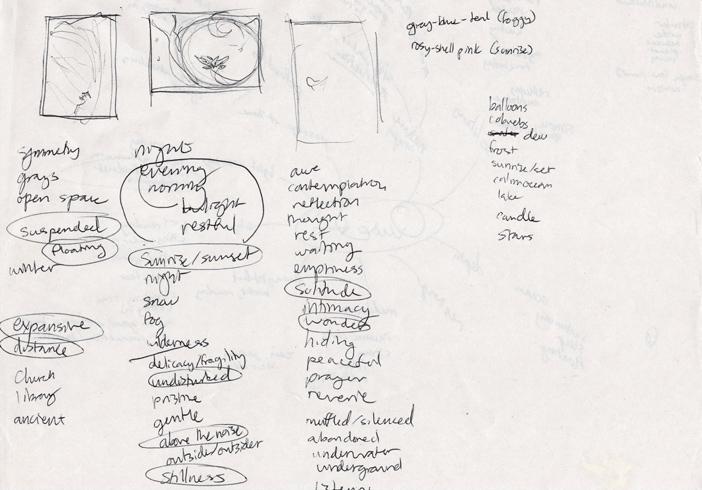 symmetry
grays
open space
suspended
floating
winter
expansive
distance
church
library
ancient
night
evening
morning
twilight
restful
sunrise/sunset
night
snow
fog
wilderness
delicacy/fragility
undisturbed
pristine
gentle
above the noise
outside/outsider
stillness
awe
contemplation
reflection
thought
rest
waiting
emptiness
solitude
intimacy
wonder
hiding
peaceful
prayer
reverie
muffled/silenced
abandoned
underwater
underground
gray-blue-teal (foggy)
rosy-shell pink (sunrise)
balloons
cobwebs
dew
frost
sunrise/set
calm ocean
lake
candle
stars